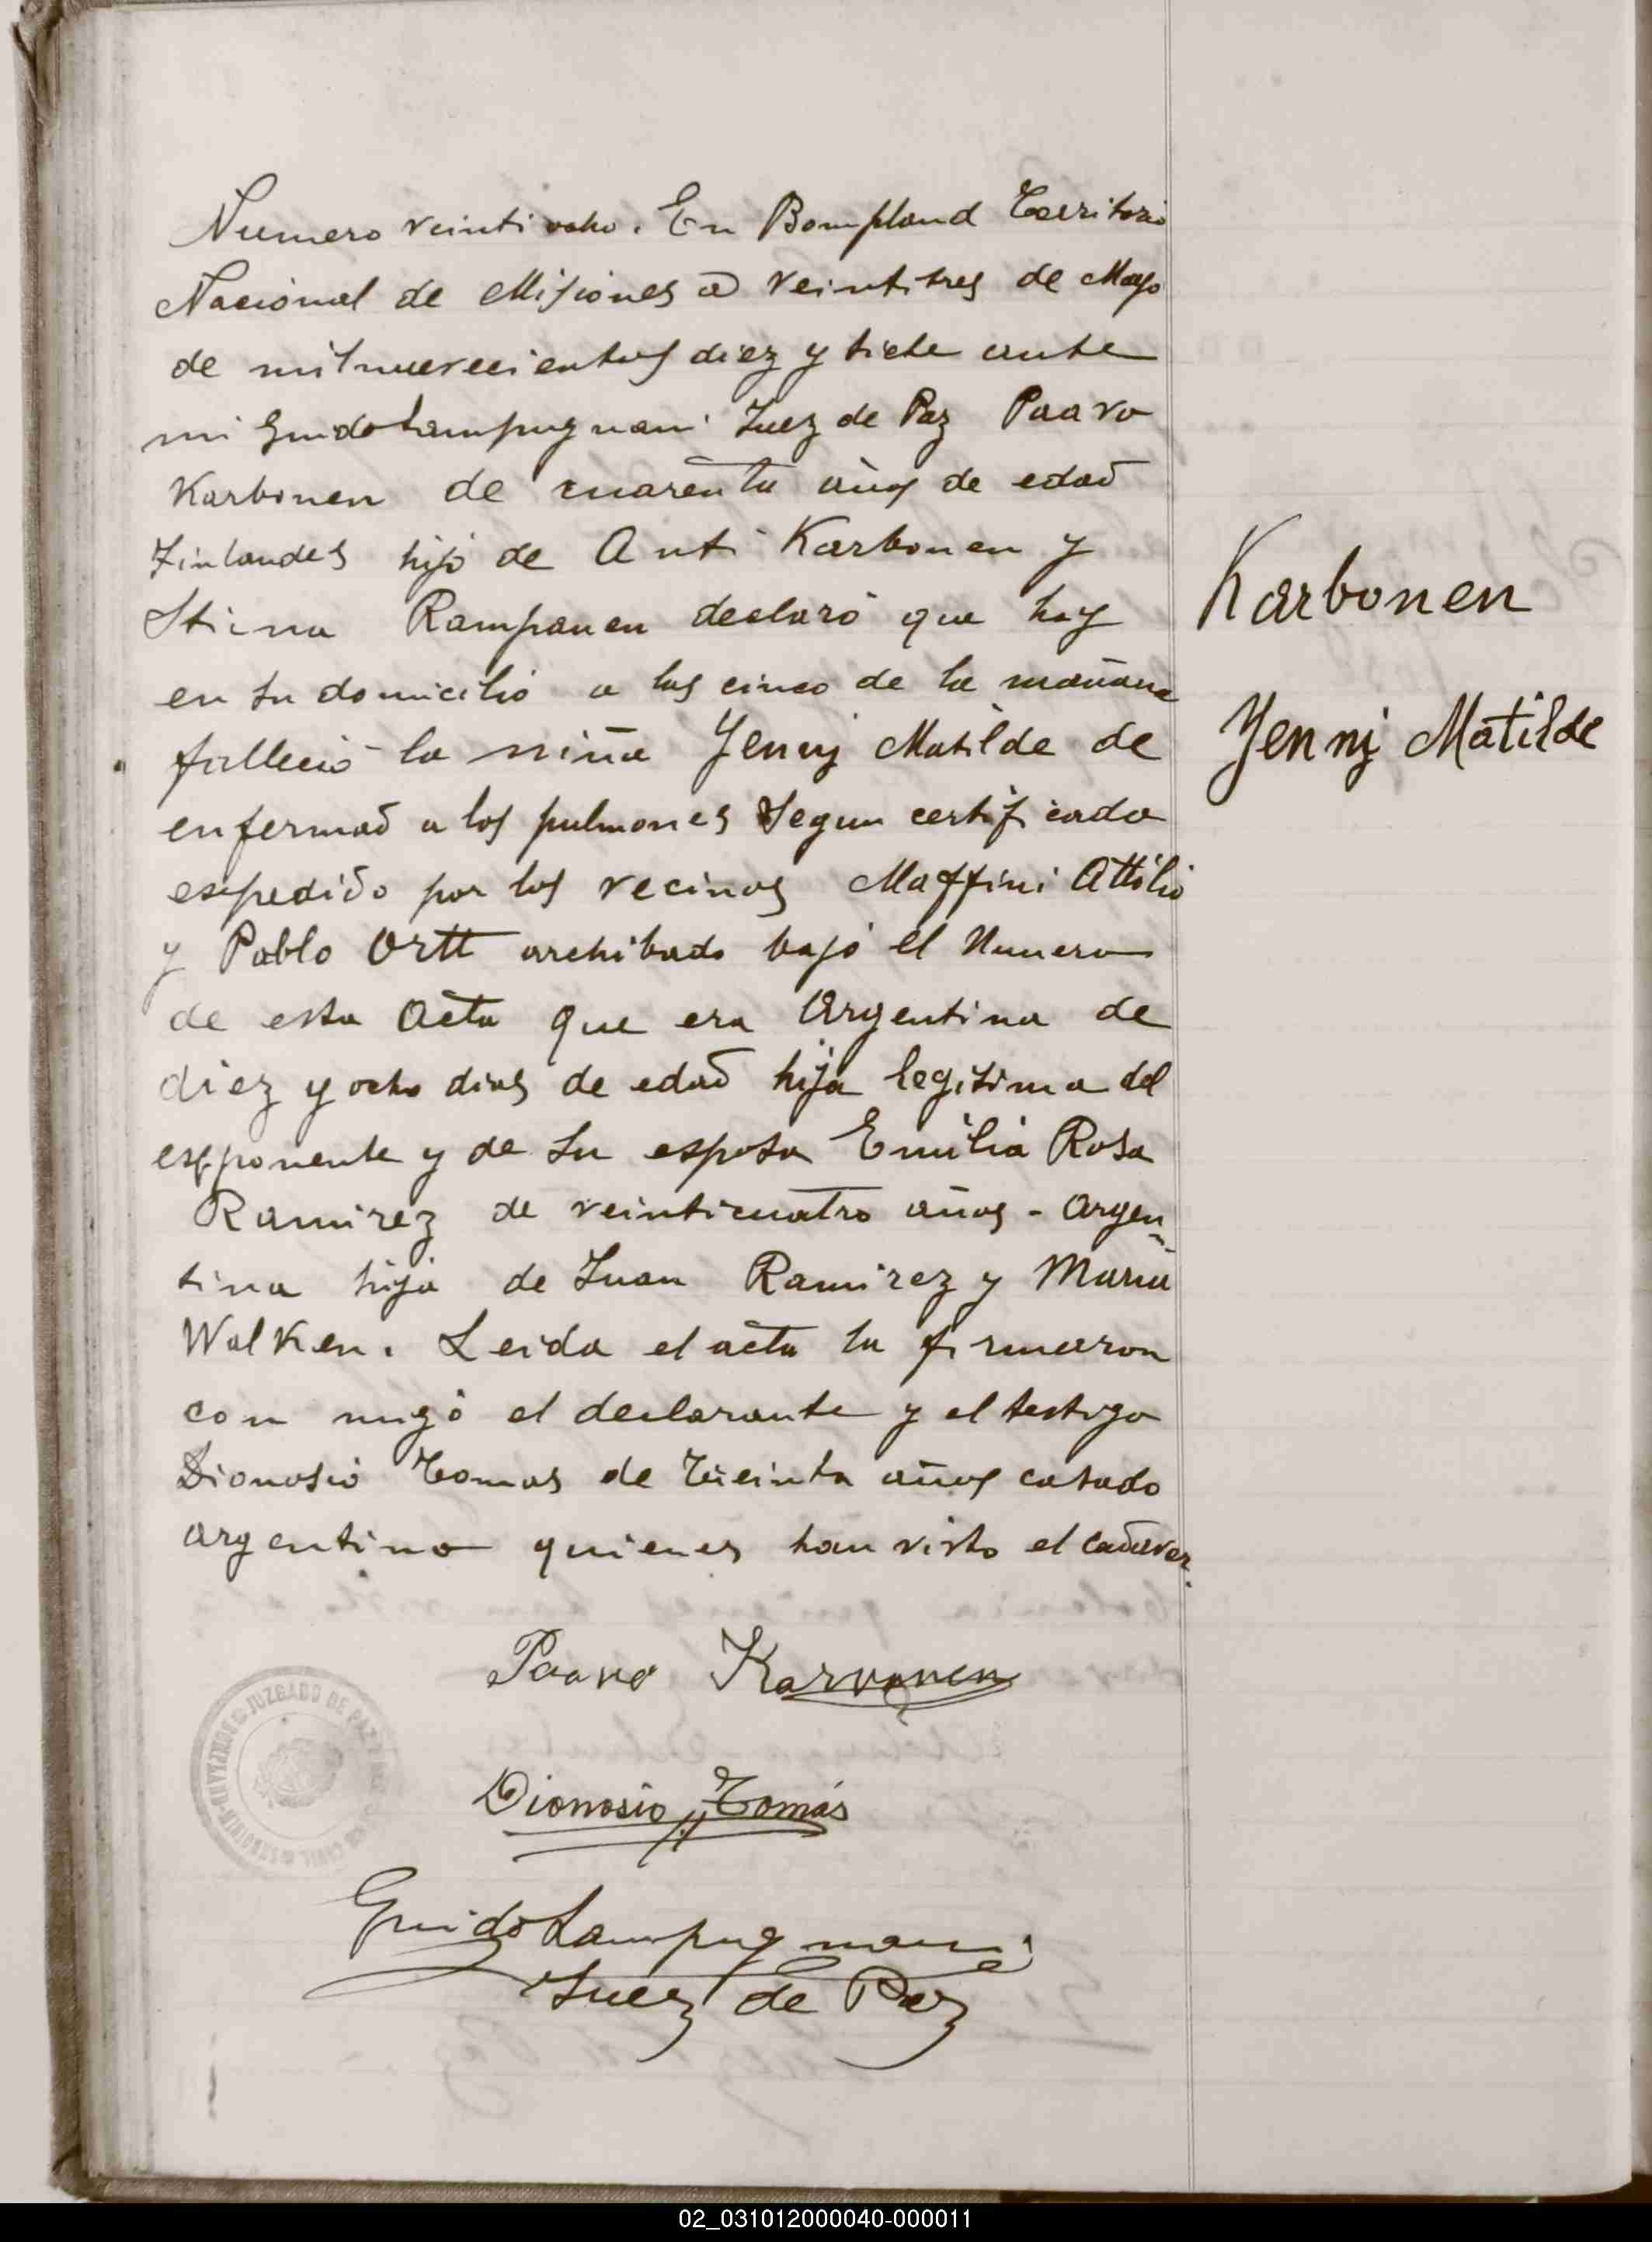 Numero veinti ocho. En Bompland Territorio
Nacional de Misiones a veintitres de Mayo
de mil nuevecientos diez y siete ante
mi Guido Lampugnani Juez de Paz Paavo
Karbonen de cuarenta años de edad
Finlandes hijo de Anti Karbonen y
Stina Rampanen declaró que hoy
en su domicilio a las cinco de la mañana
falleció la niña Jennj Matilde de
enfermad a los pulmones segun certificado
espedido por los vecinos Maffini Attilio
y Pablo Ortt archibado bajo el Numero
de esta Acta que era Argentina de
diez y ocho dias de edad hija legitima del
esponente y de su esposa Emilia Rosa
Ramirez de veinticuatro años - argen
tina hija de Juan Ramirez y Maria
Walken. Leida el acta la firmaron
con migo el declarante y el testigo
Dionosio Tomas de treinta años casado
argentino quienes han visto el cadaver.
Karbonen
Jennj Matilde
Paavo Karvonen
Dionosio Tomás
Guido Lampugnani
Juez de Paz
JUZGADO DE PAZ
02_031012000040-000011